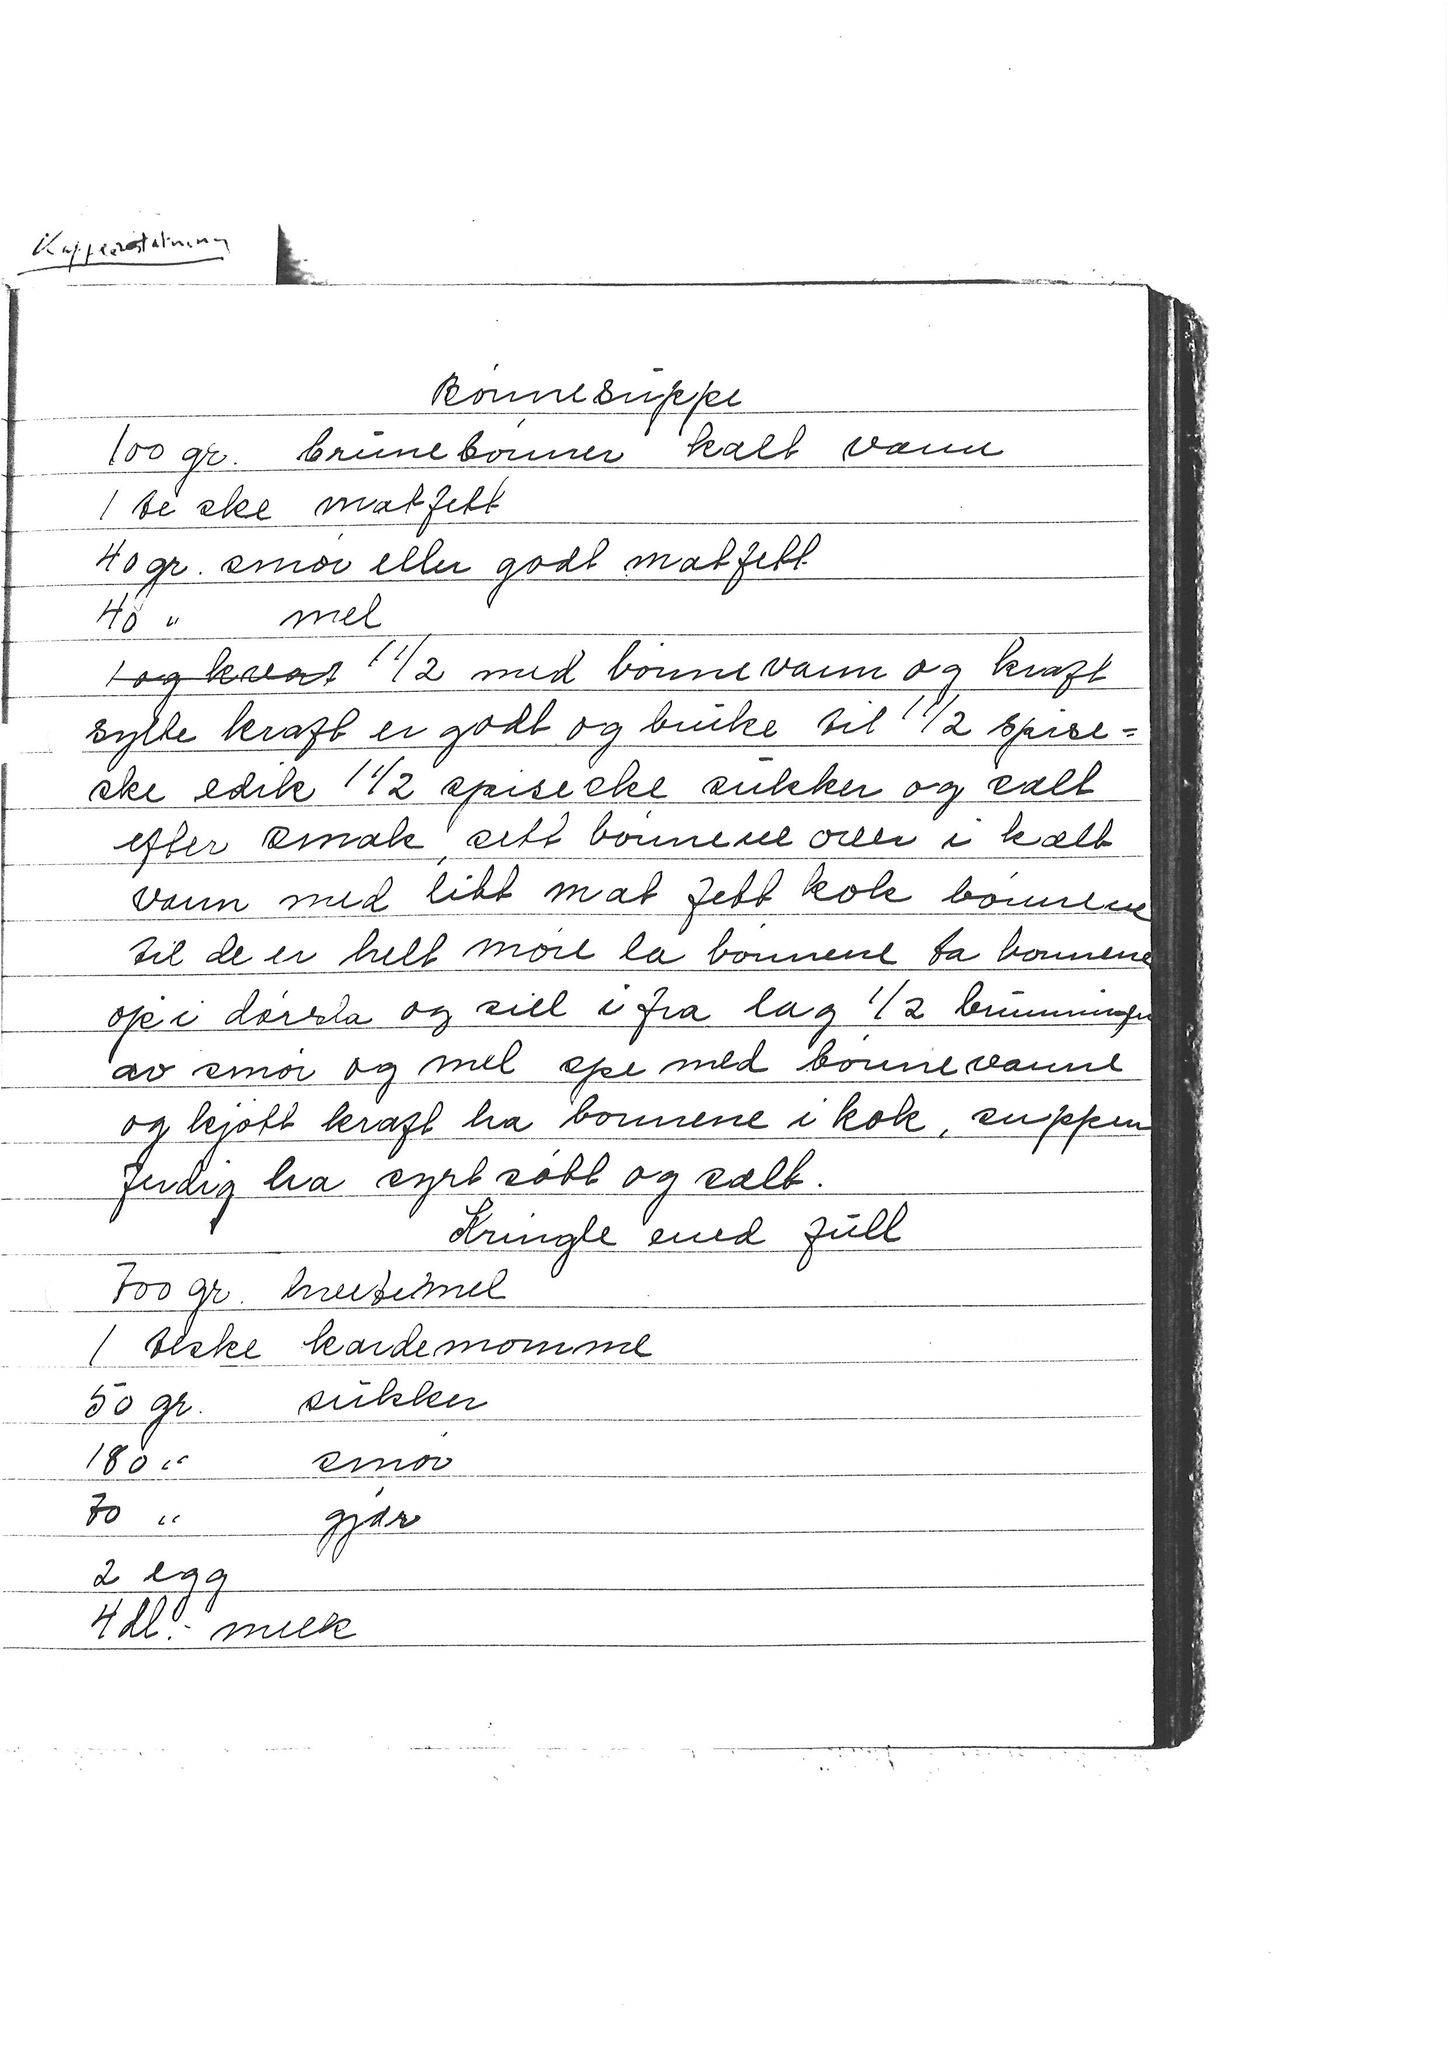 Kaffeerstatning
Bønnesuppe
100 gr. brunebønner kalt vann
1 te ske matfett
40 gr. smør eller godt matfett
40 " mel
1 og kvart 1 1/2 med bønnevann og kraft
sylte kraft er godt og bruke til 1 1/2 spise=
ske edik 1 1/2 spiseske sukker og salt
efter smak, sett bønnene over i kalt
vann med litt mat fett kok bønnene
til de er helt møre la bønnene ta bønnene
op i dørsla og siel i fra lag 1/2 brunninger
av smør og mel spe med bønnevanne
og kjøtt kraft ha bønnene i kok, suppen
ferdig ha syrt søtt og salt.
Kringle med full
700 gr. hvetemel
1 teske kardemomme
50 gr. sukker
180 " smør
70 " gjær
2 egg
4 dl. - melk